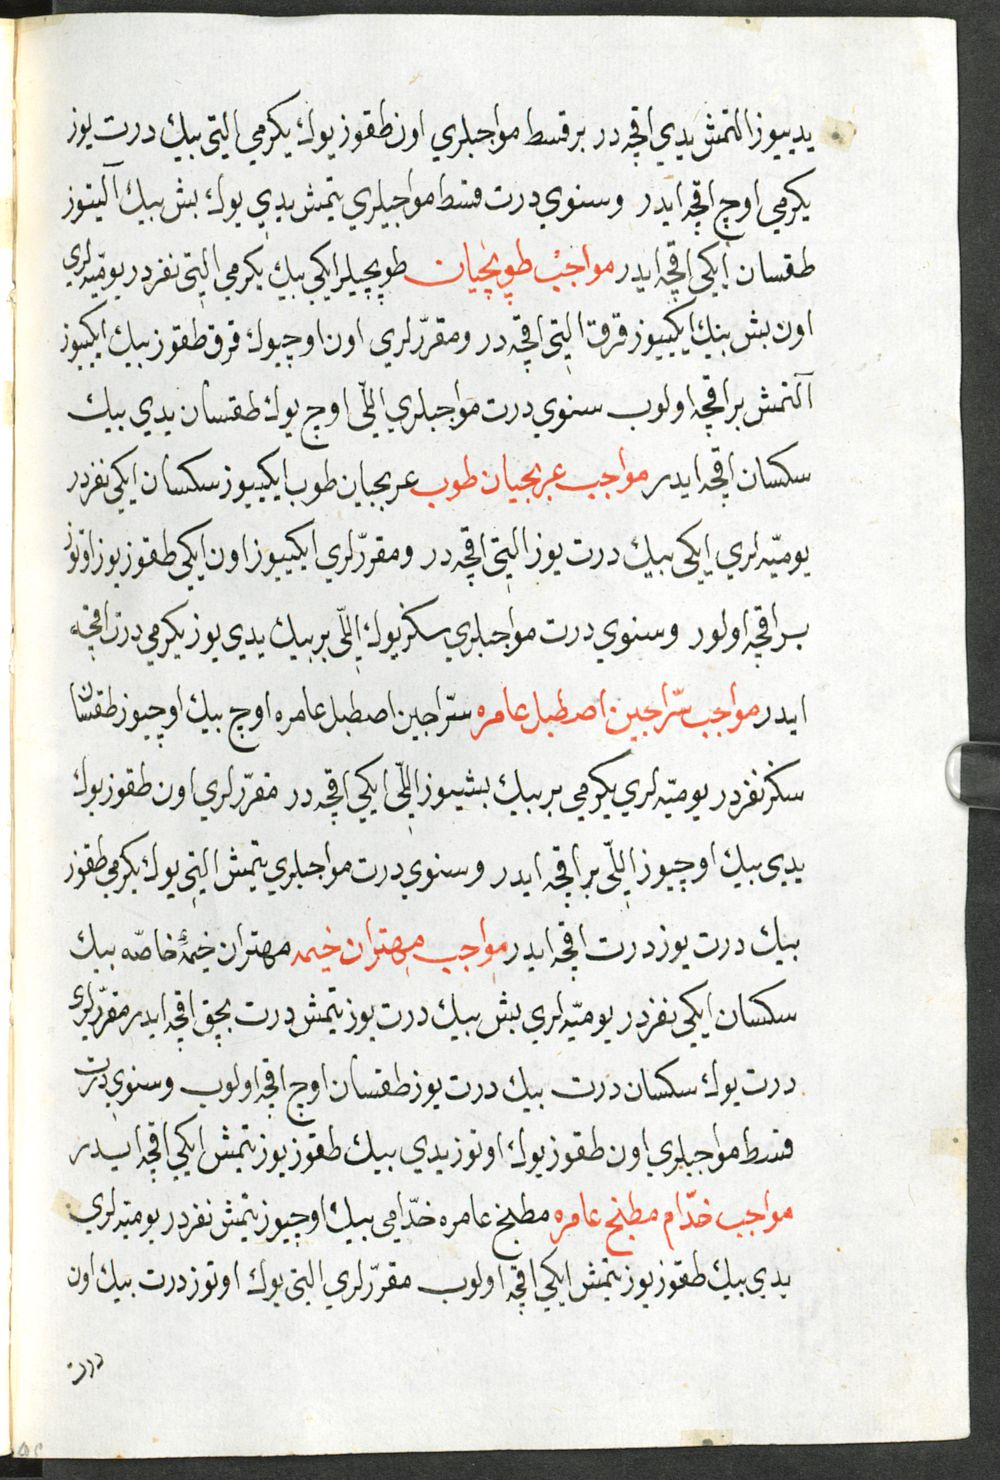 يدييوز التمش يدي اقچه در بر قسط مواجبلري اون طقوز يوك يكرمي التي بيك درت يوز
يكرمي اوچ اقچه ايدر وسنوي درت قسط مواجبلري يتمش يدي يوك بش بيك آلتيوز
طقسان ايكي اقچه ايدر مواجب طوپچيان طوپچيلر ايكي بيك يكرمي التي نفردر يوميّه لري
اون بش بيك ايكييوز قرق التي اقچه در ومقرّرلري اون اوچ يوك قرق طقوز بيك ايكييوز
آلتمش بر اقچه اولوب سنوي درت مواجبلري اللّي اوچ يوك طقسان يدي بيك
سكسان اقچه ايدر مواجب عربجيان طوب عربجيان طوب ايكييوز سكسان ايكي نفردر
يوميّه لري ايكي بيك درت يوز التي اقچه در ومقرّرلري ايكييوز اون ايكي طقوز يوز اوتوز
بر اقچه اولور وسنوي درت مواجبلري سكز يوك اللّي بر بيك يدي يوز يكرمي درت اقچه
ايدر مواجب سرّاجين اصطبل عامره سرّاجين اصطبل عامره اوچ بيك اوچيوز طقسان
سكز نفردر يوميّه لري يكرمي بر بيك بشيوز اللّي ايكي اقچه در مقرّرلري اون طقوز يوك
يدي بيك اوچيوز اللّي بر اقچه ايدر وسنوي درت مواجبلري يتمش التي يوك يكرمي طقوز
بيك درت يوز درت اقچه ايدر مواجب مهتران خيمه مهتران خيمۀ خاصّه بيك
سكسان ايكي نفردر يوميّه لري بش بيك درت يوز يتمش درت بچق اقچه ايدر مقرّرلري
درت يوك سكسان درت بيك درت يوز طقسان اوچ اقچه اولوب وسنوي درت
قسط مواجبلري اون طقوز يوك اوتوز يدي بيك طقوز يوز يتمش ايكي اقچه ايدر
مواجب خدّام مطبخ عامره مطبخ عامره خدّامي بيك اوچيوز يتمش نفردر يوميّه لري
يدي بيك طقوز يوز يتمش ايكي اقچه اولوب مقرّرلري التي يوك اوتوز درت بيك اون
درت